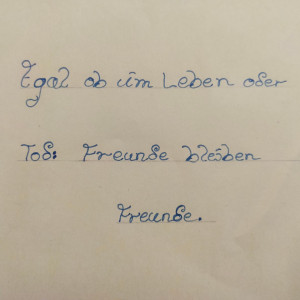 Egal ob im Leben oder
Tod: Freunde bleiben
Freunde.